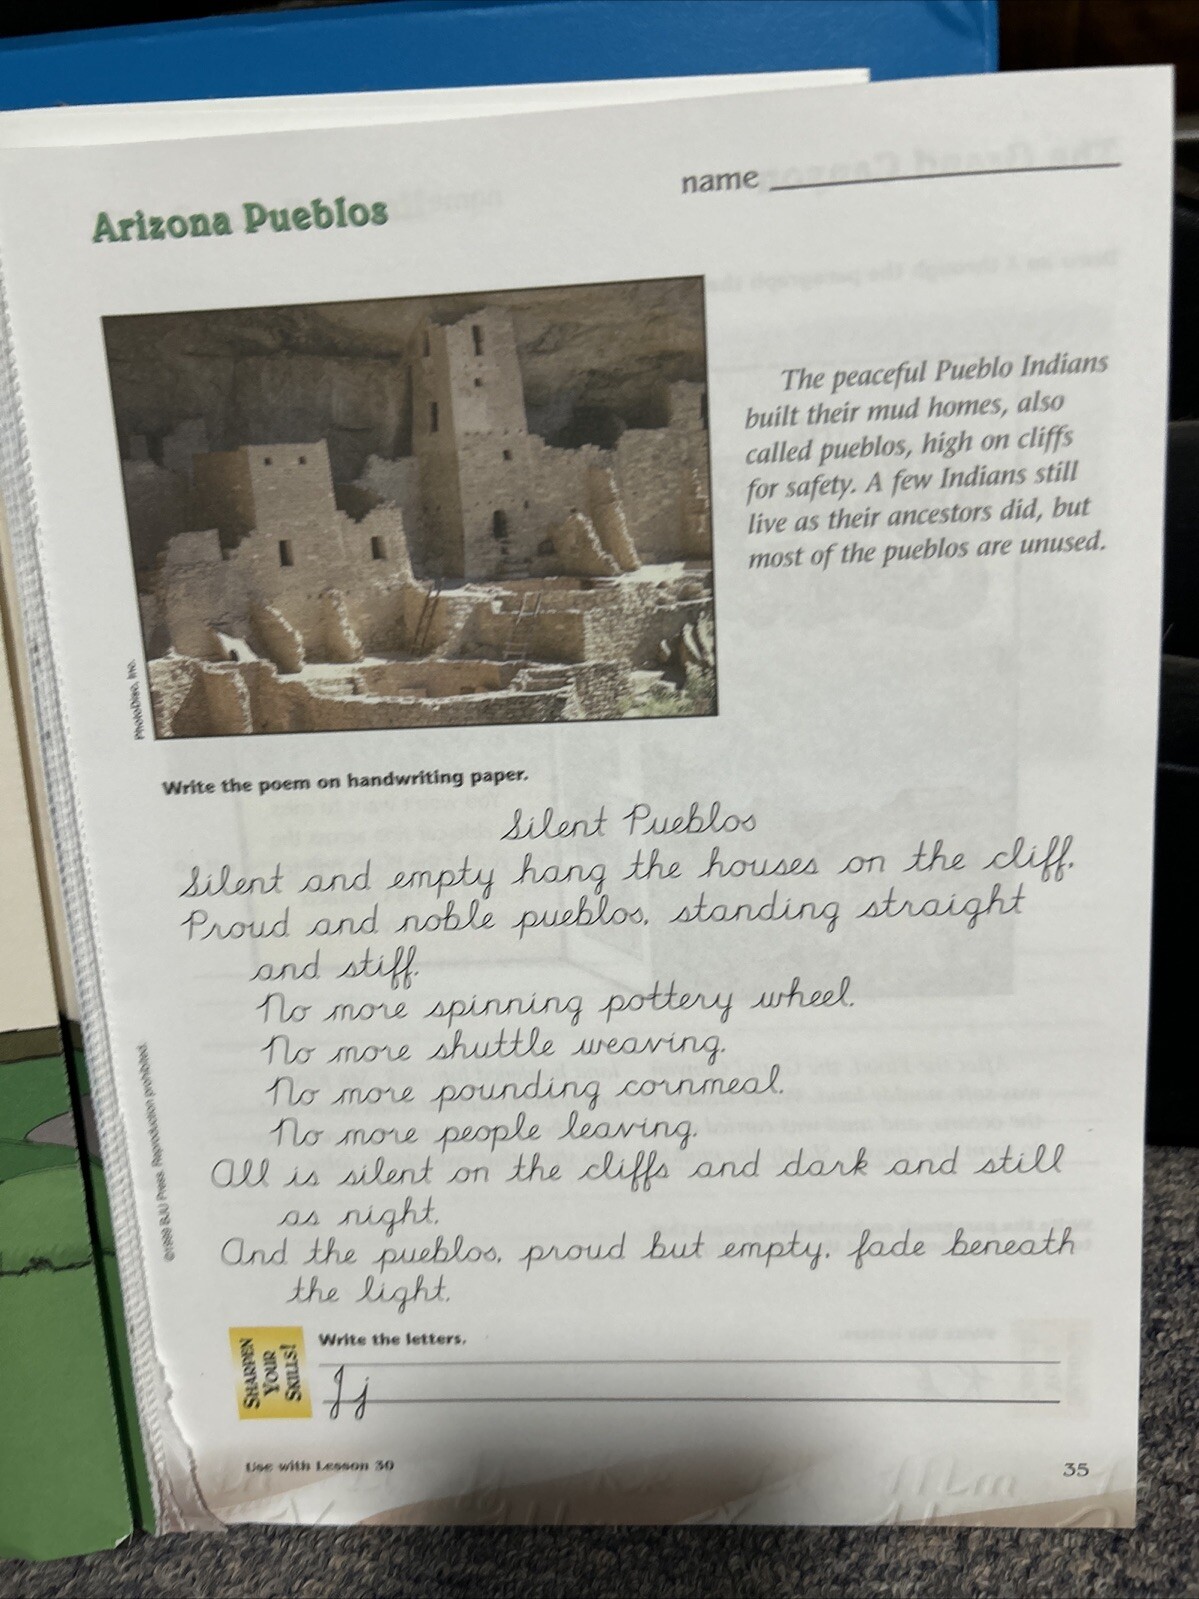 name
Arizona Pueblos
The peaceful Pueblo Indians
built their mud homes, also
called pueblos, high on cliffs
for safety. A few Indians still
live as their ancestors did, but
most of the pueblos are unused.
PhotoDisc, Inc.
Write the poem on handwriting paper.
Silent Pueblos
Silent and empty hang the houses on the cliff.
Proud and noble pueblos, standing straight
and stiff.
No more spinning pottery wheel.
No more shuttle weaving.
No more pounding cornmeal.
No more people leaving.
All is silent on the cliffs and dark and still
as night.
And the pueblos, proud but empty, fade beneath
the light.
©1999 BJU Press. Reproduction prohibited.
SHARPEN
YOUR
SKILLS!
Write the letters.
Jj
Use with Lesson 30
35